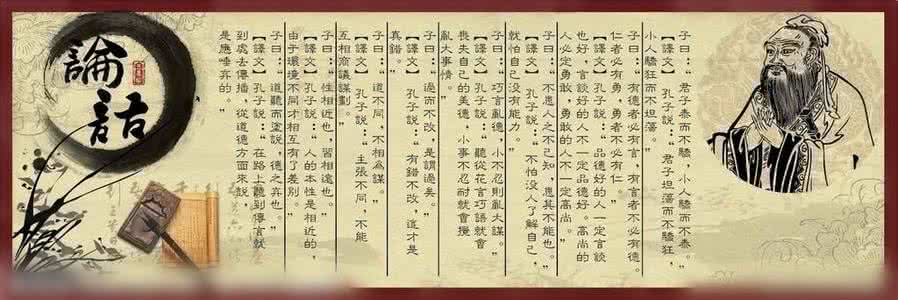 子曰：“君子泰而不驕，小人驕而不泰。”
【譯文】孔子說：“君子坦蕩而不驕狂，
小人驕狂而不坦蕩。
子曰：“有德者必有言，有言者不必有德。
仁者必有勇，勇者不必有仁。”
【譯文】孔子說：“品德好的人一定言談
也好，言談好的人不一定品德好。高尚的
人必定勇敢，勇敢的人不一定高尚。”
子曰：“不患人之不己知，患其不能也。”
【譯文】孔子說：“不怕沒人了解自己，
就怕自己沒有能力。”
子曰：“巧言亂德，小不忍則亂大謀。”
【譯文】孔子說：“聽從花言巧語就會
喪失自己的美德，小事不忍耐就會攪
亂大事情。”
子曰：“過而不改，是謂過矣。”
【譯文】孔子說：“有錯不改，這才是
真錯。”
子曰：“道不同，不相為謀。”
【譯文】孔子說：“主張不同，不能
互相商議謀劃。”
子曰：“性相近也，習相遠也。”
【譯文】孔子說：“人的本性是相近的，
由于環境不同才相互有了差別。”
子曰：“道聽而塗說，德之弃也。”
【譯文】孔子說：“在路上聽到傳言就
到處去傳播，從道德方面來說，
是應唾弃的。”
論語